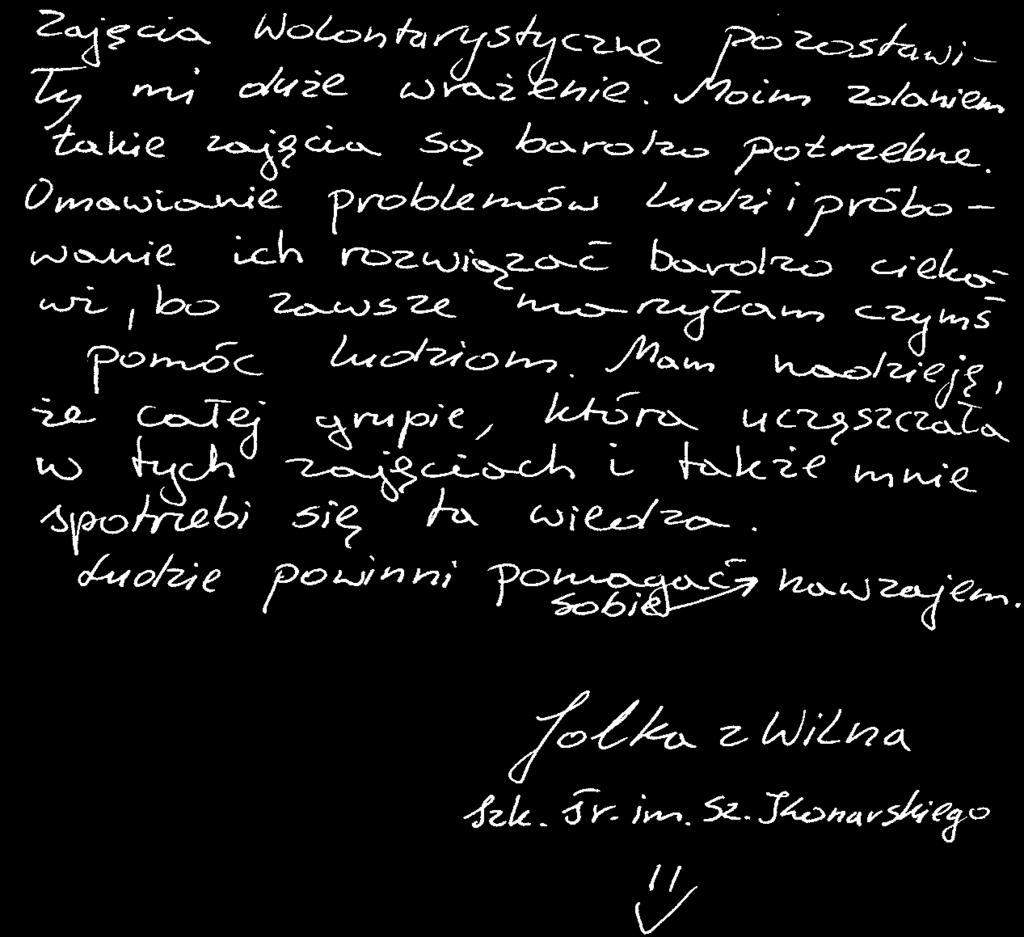 Zajęcia Wolontarystyczne pozostawi-
ły mi duże wrażenie. Moim zdaniem
takie zajęcia są bardzo potrzebne.
Omawianie problemów ludzi i próbo-
wanie ich rozwiązać bardzo cieka-
wi, bo zawsze marzyłam czymś
pomóc ludziom. Mam nadzieję,
że całej grupie, która uczęszczała
w tych zajęciach i także mnie
spotrzebi się ta wiedza.
Ludzie powinni pomagać nawzajem.
sobie
Jolka z Wilna
Szk. śr. im. Sz. Konarskiego